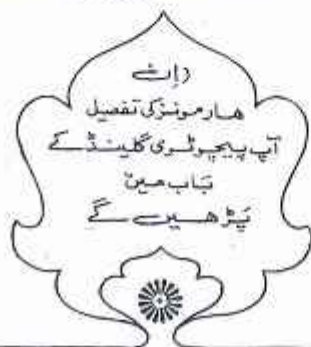 (ان
ھارمونز کی تفصیل
آپ پیچوٹری گلینڈ کے
باب میں
پڑھیں گے